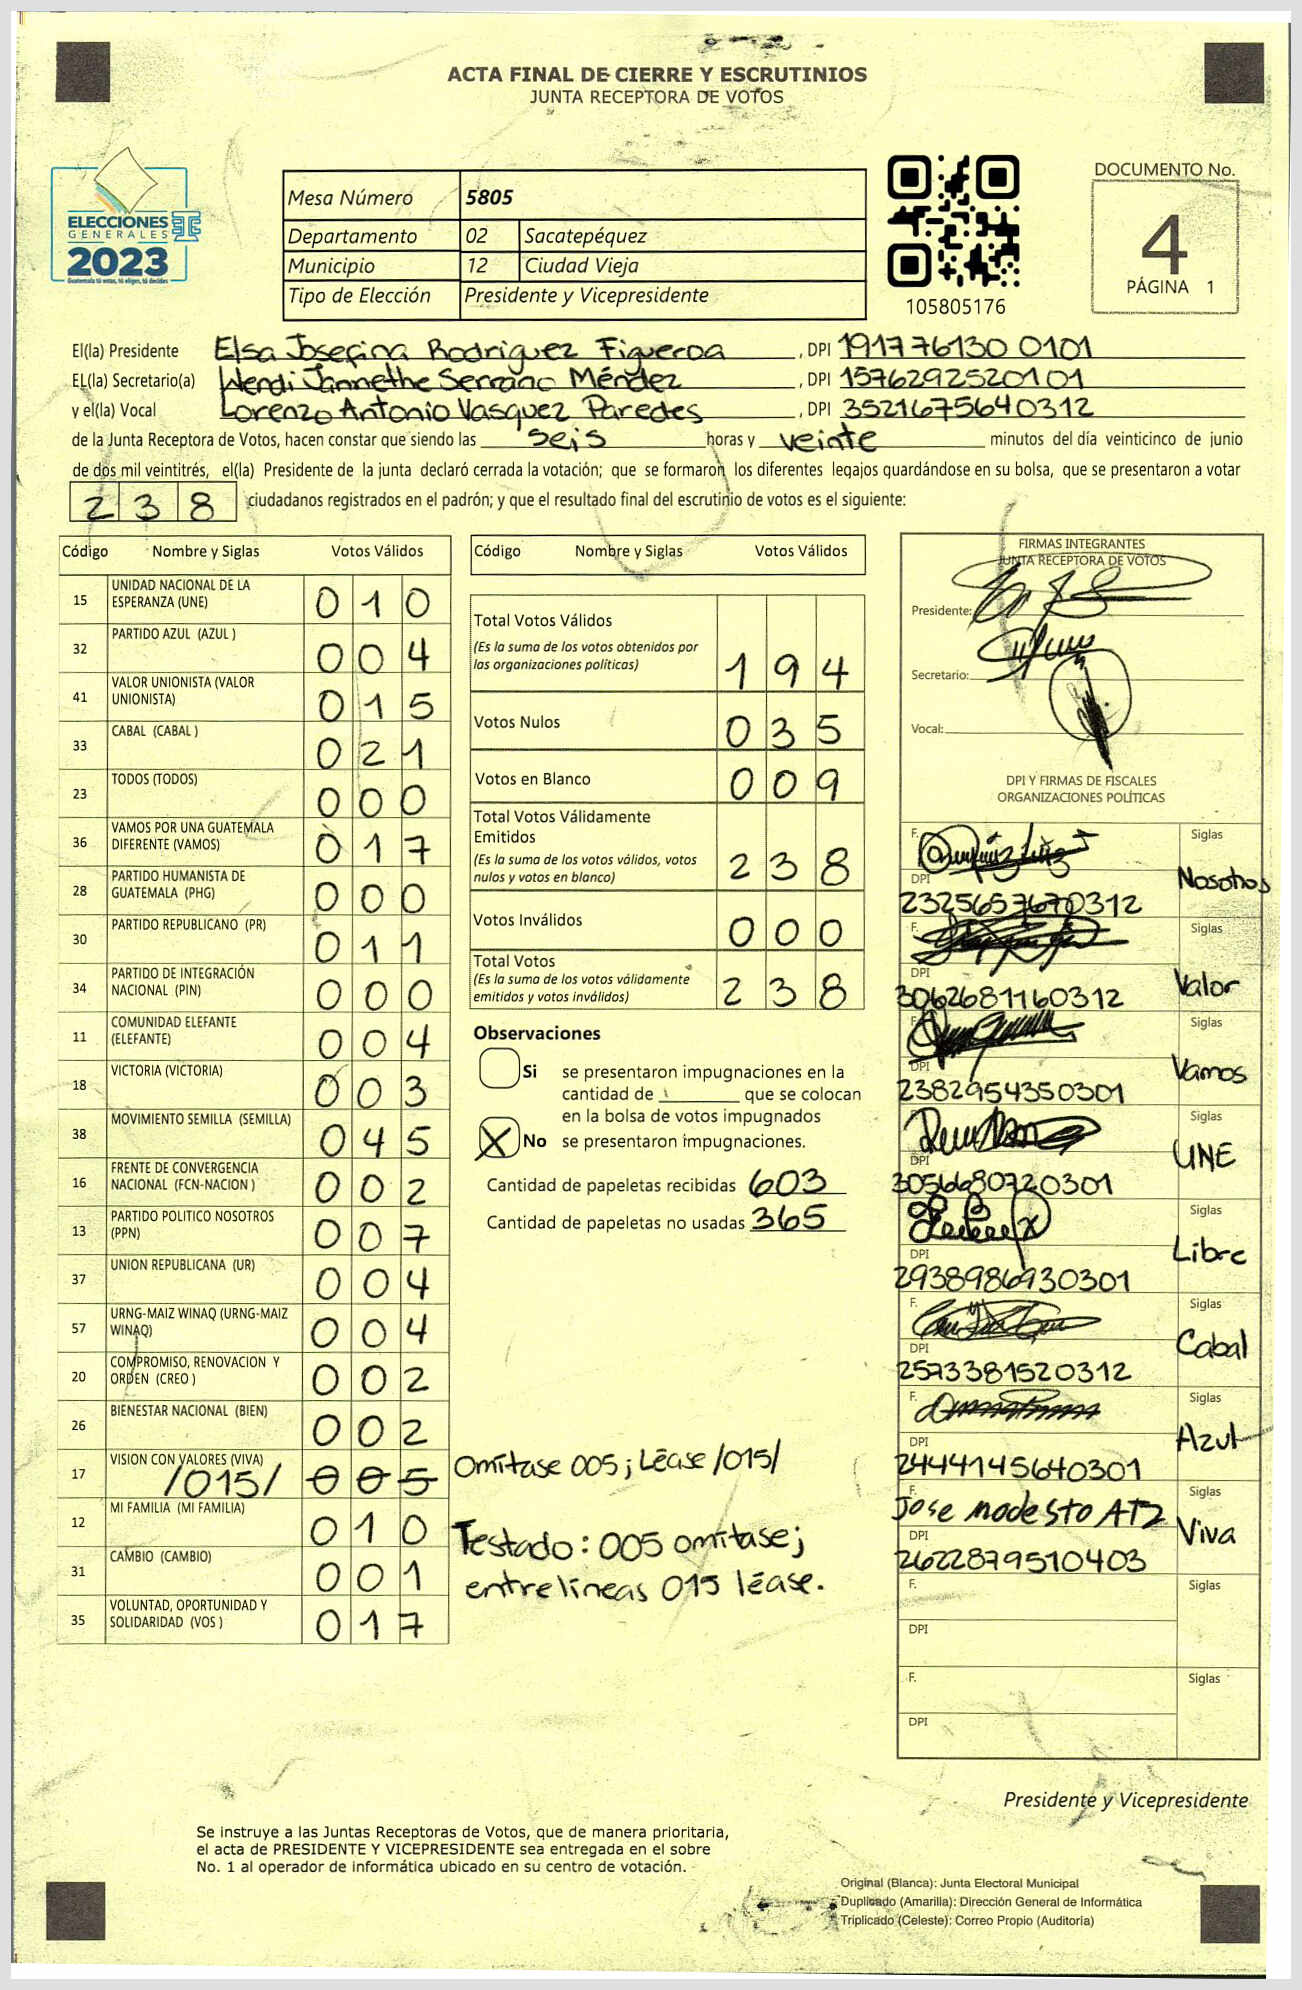 ACTA FINAL DE CIERRE Y ESCRUTINIOS
JUNTA RECEPTORA DE VOTOS
ELECCIONES
GENERALES
2023
Guatemala tú votas, tú eliges, tú decides
Mesa Número 5805
Departamento 02 Sacatepéquez
Municipio 12 Ciudad Vieja
Tipo de Elección Presidente y Vicepresidente
105805176
DOCUMENTO No.
4
PÁGINA 1
El(la) Presidente Elsa Josefina Rodriguez Figueroa, DPI 191776130 0101
EL(la) Secretario(a) Wendi Jannethe Serrano Méndez, DPI 1576292520101
y el(la) Vocal Lorenzo Antonio Vasquez Paredes, DPI 3521675640312
de la Junta Receptora de Votos, hacen constar que siendo las seis horas y veinte minutos del día veinticinco de junio
de dos mil veintitrés, el(la) Presidente de la junta declaró cerrada la votación; que se formaron los diferentes legajos guardándose en su bolsa, que se presentaron a votar
238 ciudadanos registrados en el padrón; y que el resultado final del escrutinio de votos es el siguiente:
Código Nombre y Siglas Votos Válidos
15 UNIDAD NACIONAL DE LA ESPERANZA (UNE) 010
32 PARTIDO AZUL (AZUL ) 004
41 VALOR UNIONISTA (VALOR UNIONISTA) 015
33 CABAL (CABAL ) 021
23 TODOS (TODOS) 000
36 VAMOS POR UNA GUATEMALA DIFERENTE (VAMOS) 017
28 PARTIDO HUMANISTA DE GUATEMALA (PHG) 000
30 PARTIDO REPUBLICANO (PR) 011
34 PARTIDO DE INTEGRACIÓN NACIONAL (PIN) 000
11 COMUNIDAD ELEFANTE (ELEFANTE) 004
18 VICTORIA (VICTORIA) 003
38 MOVIMIENTO SEMILLA (SEMILLA) 045
16 FRENTE DE CONVERGENCIA NACIONAL (FCN-NACION ) 002
13 PARTIDO POLITICO NOSOTROS (PPN) 007
37 UNION REPUBLICANA (UR) 004
57 URNG-MAIZ WINAQ (URNG-MAIZ WINAQ) 004
20 COMPROMISO, RENOVACION Y ORDEN (CREO ) 002
26 BIENESTAR NACIONAL (BIEN) 002
17 VISION CON VALORES (VIVA) /015/ 005 Omítase 005; Léase /015/
12 MI FAMILIA (MI FAMILIA) 010
31 CAMBIO (CAMBIO) 001
35 VOLUNTAD, OPORTUNIDAD Y SOLIDARIDAD (VOS ) 017
Testado: 005 omítase;
entrelíneas 015 léase.
Código Nombre y Siglas Votos Válidos
Total Votos Válidos 194
(Es la suma de los votos obtenidos por
las organizaciones políticas)
Votos Nulos 035
Votos en Blanco 009
Total Votos Válidamente
Emitidos 238
(Es la suma de los votos válidos, votos
nulos y votos en blanco)
Votos Inválidos 000
Total Votos 238
(Es la suma de los votos válidamente
emitidos y votos inválidos)
Observaciones
Si se presentaron impugnaciones en la
cantidad de que se colocan
en la bolsa de votos impugnados
X No se presentaron impugnaciones.
Cantidad de papeletas recibidas 603
Cantidad de papeletas no usadas 365
FIRMAS INTEGRANTES
JUNTA RECEPTORA DE VOTOS
Presidente:
Secretario:
Vocal:
DPI Y FIRMAS DE FISCALES
ORGANIZACIONES POLÍTICAS
F. Siglas
DPI Nosotros
2325657670312
F. Siglas
DPI Valor
3062681160312
F. Siglas
DPI Vamos
2382954350301
Siglas
DPI UNE
3056680720301
Siglas
DPI Libre
2938986930301
F. Siglas
DPI Cabal
2573381520312
F. Siglas
DPI Azul
2444145640301
F. Jose Modesto Siglas
DPI Viva
2622879510403
F. Siglas
DPI
F. Siglas
DPI
Presidente y Vicepresidente
Se instruye a las Juntas Receptoras de Votos, que de manera prioritaria,
el acta de PRESIDENTE Y VICEPRESIDENTE sea entregada en el sobre
No. 1 al operador de informática ubicado en su centro de votación.
Original (Blanca): Junta Electoral Municipal
Duplicado (Amarilla): Dirección General de Informática
Triplicado (Celeste): Correo Propio (Auditoría)